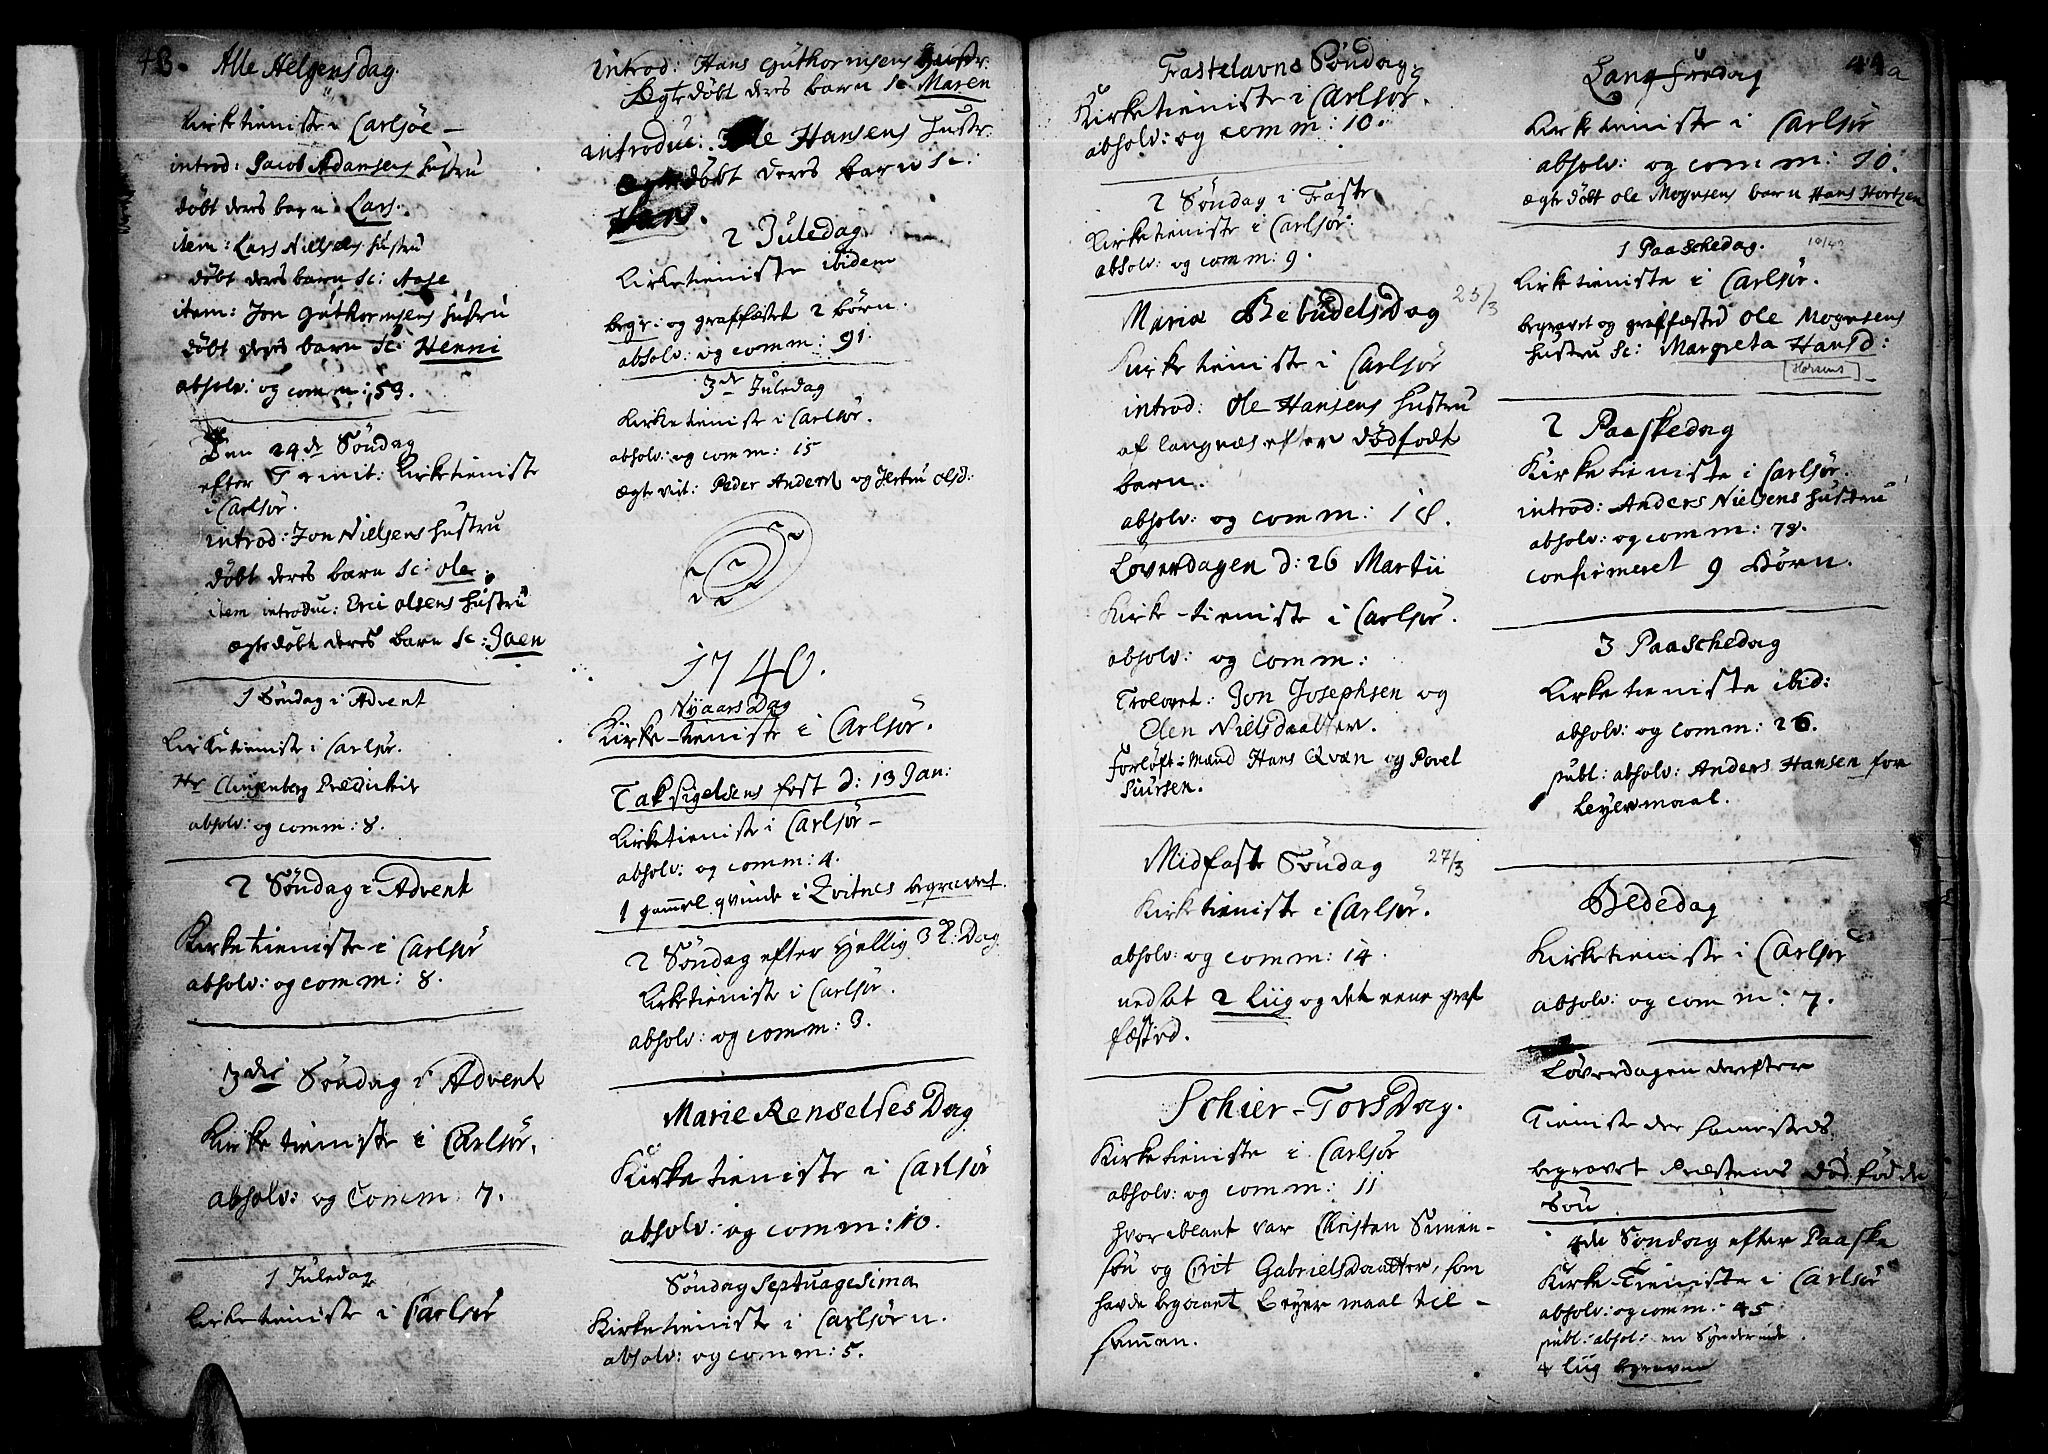 48.
Alle Helgensdag.
Kirketieniste i Carlsöe
introd: Jacob Adamsens hustru
döbt deres barn Lars.
item: Lars Nielsens hustru
döbt deres barn sc: Aase
item: Jon Guthormsens hustru
döbt deres barn sc: Henni
absolv: og comm: 53.
Den 24de Söndag
efter Trinit: Kirketieniste
i Carlsör.
introd: Jon Nielsens hustru
döbt deres barn sc: ole.
item introduc: Erici olsens hustru
ægte döbt deres barn sc: Joen
1 Söndag i Advent
Kirketieniste i Carlsör.
Hr Clingenberg Prædikede
absolv: og comm: 8.
2 Söndag i Advent
Kirketieniste i Carlsör
absolv: og comm: 8.
3die Söndag i Advent
Kirketieniste i Carlsör.
absolv: og Comm: 7.
1 Juledag
Kirketieniste i Carlsör
introd: Hans Guthormsens Hustr.
Ægte döbt deres barn sc Maren
introduc: Ole Hansens hustr.
ægte döbt deres barn sc.
Han.
2 Juledag
Kirketieniste ibidem
begr: og graffæstet 2 börn.
absolv: og comm: 91.
3de Juledag
Kirketieniste i Carlsör.
absolv: og comm: 15
ægte vit: Peder Anders og olsd:
1740.
Nyaars Dag
Kirke-tieniste i Carlsör.
Taksigelsens fest d: 13 Jan:
Kirketieniste i Carlsör
absolv: og comm: 4.
1 gammel qvinde i Qvitnes begravet.
2 Söndag efter Hellig 3 K: Dag
Kirketieniste i Carlsör.
absolv: og comm: 3.
Marie Renselses Dag
Kirketieniste i Carlsör
absolv: og comm: 10.
Söndag Septuagesima
Kirketieniste i Carlsörn.
absolv: og comm: 5.
Fastelavns Söndag
Kirketieniste i Carlsör.
absolv: og comm: 10.
2 Söndag i Faste
Kirketieniste i Carlsör:
absolv: og comm: 9.
Mariæ Bebudels Dag 25/3
Kirketieniste i Carlsör
introd: Ole Hansens hustru
af langnæs efter dödfödt
barn.
absolv: og comm: 18.
Löverdagen d: 26 Martii
Kirke-tieniste i Carlsör.
absolv: og comm:
Trolovet: Jon Josephsen og
Elen Nielsdaatter.
Forlöft: Mænd Hans Qvæn og Povel
Siursen.
Midfaste Söndag 27/3
Kirketieniste i Carlsör.
absolv: og comm: 14.
nedsat 2 Liig og det eene graf
fæsted.
Schier-Torsdag.
Kirketieniste i Carlsör
absolv: og comm: 11
hvoriblant var Christen Simen-
sön og Gabrielsdaatter, som
havde begaaet Leyermaal til-
sammen.
49a
Langfredag
Kirketieniste i Carlsör
absolv: og comm: 10.
ægte döbt ole Mognsens barn Hans Hortzen
1 Paaschedag. 10/4?
Kirketieniste i Carlsör.
begravet og graffæsted Ole Mognsens
hustru sc: Margreta Hansd:
[Horsens]
2 Paaskedag
Kirketieniste i Carlsör.
introd: Anders Nielsens hustru
absolv: og comm: 78.
confirmeret 9 Börn.
3 Paaschedag
Kirketieniste ibid:
absolv: og comm: 26.
publ: absolv: Anders Hansen for
Leyermaal.
Bededag
Kirketieniste i Carlsör
absolv: og comm: 7.
Löverdagen derefter
Tieniste der sammesteds.
begravet Præstens död födde
Sön
4de Söndag efter Paaske
Kirke-Tieniste i Carlsör
absolv: og comm: 45
publ: absol: en Synderinde.
4 liig begravne